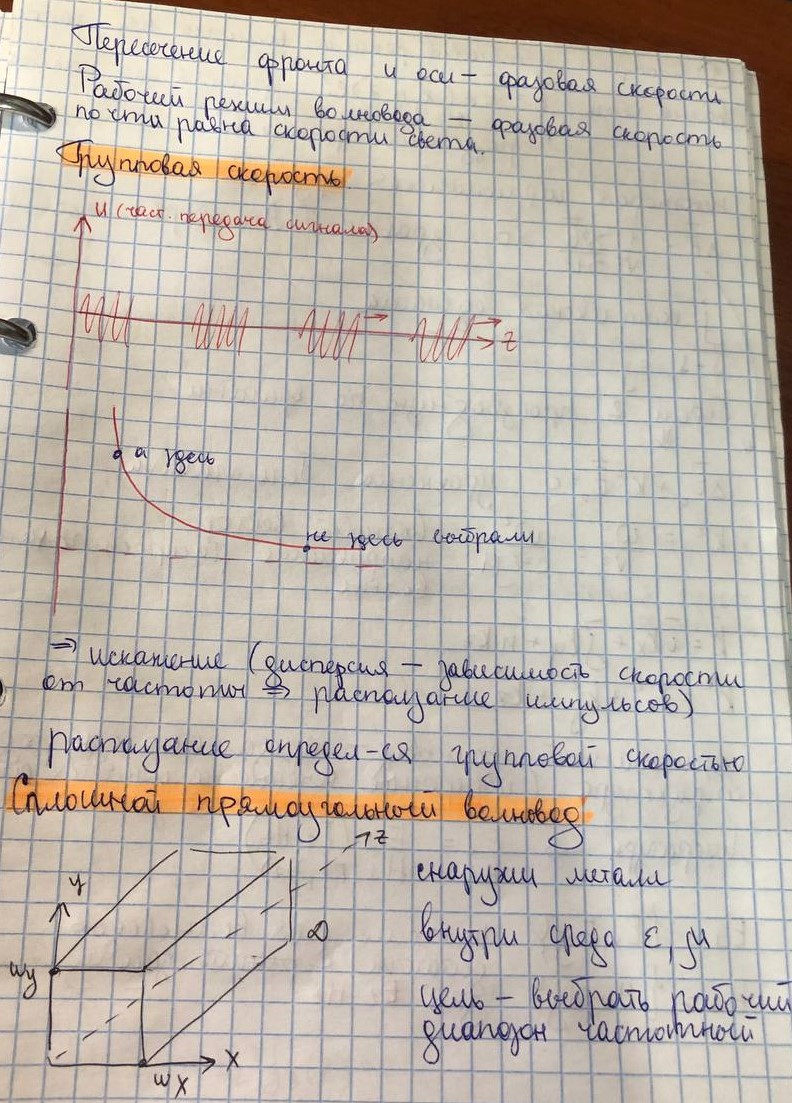 Пересечение фронта и оси – фазовая скорости
Рабочий режим волновода – фазовая скорость
почти равна скорости света.
Групповая скорость
U (част. передача сигнала)
z
а здесь
не здесь выбрали
⇒ искажение (дисперсия – зависимость скорости
от частоты ⇒ расползание импульсов)
расползание определ-ся групповой скоростью
Сплошной прямоугольный волновод
z
y
снаружи металл
∞
внутри среда ε, μ
wy
цель – выбрать рабочий
диапозон частотный
x
wx